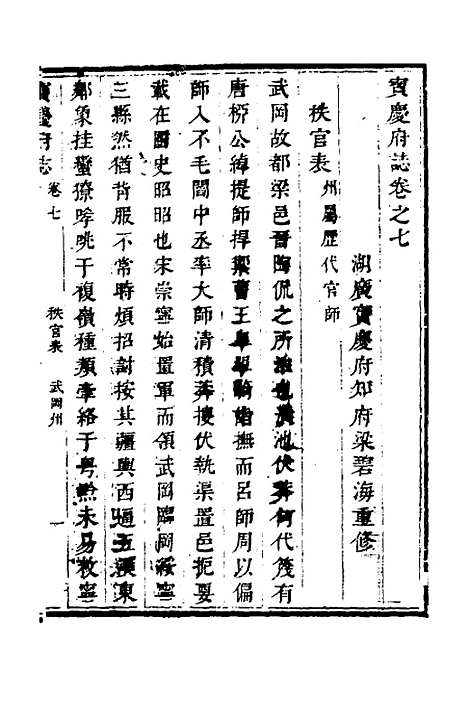 寳慶府誌卷之七
湖廣寳慶府知府梁碧海重修
秩官表 州屬歷代官師
武岡故都梁邑晉陶侃之所治也潢池伏莽何代篾有
唐栁公綽提師捍禦曹王皋單騎招撫而呂師周以偏
師入不毛閻中丞率大師清積莽摟伏執渠置邑扼要
載在圖史昭昭也宋崇寧始置軍而領武岡臨岡綏寧
三縣然猶背服不常時煩招討按其疆輿西通五溪東
鄰象挂蠻獠嘑咷于複嶺種類牽絡于粤黔未易敉寧
寳慶府志 卷七 秩官表 武岡州 一